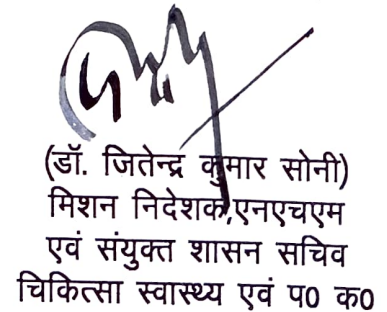 (डॉ. जितेन्द्र कुमार सोनी)
मिशन निदेशक,एनएचएम
एवं संयुक्त शासन सचिव
चिकित्सा स्वास्थ्य एवं प0 क0